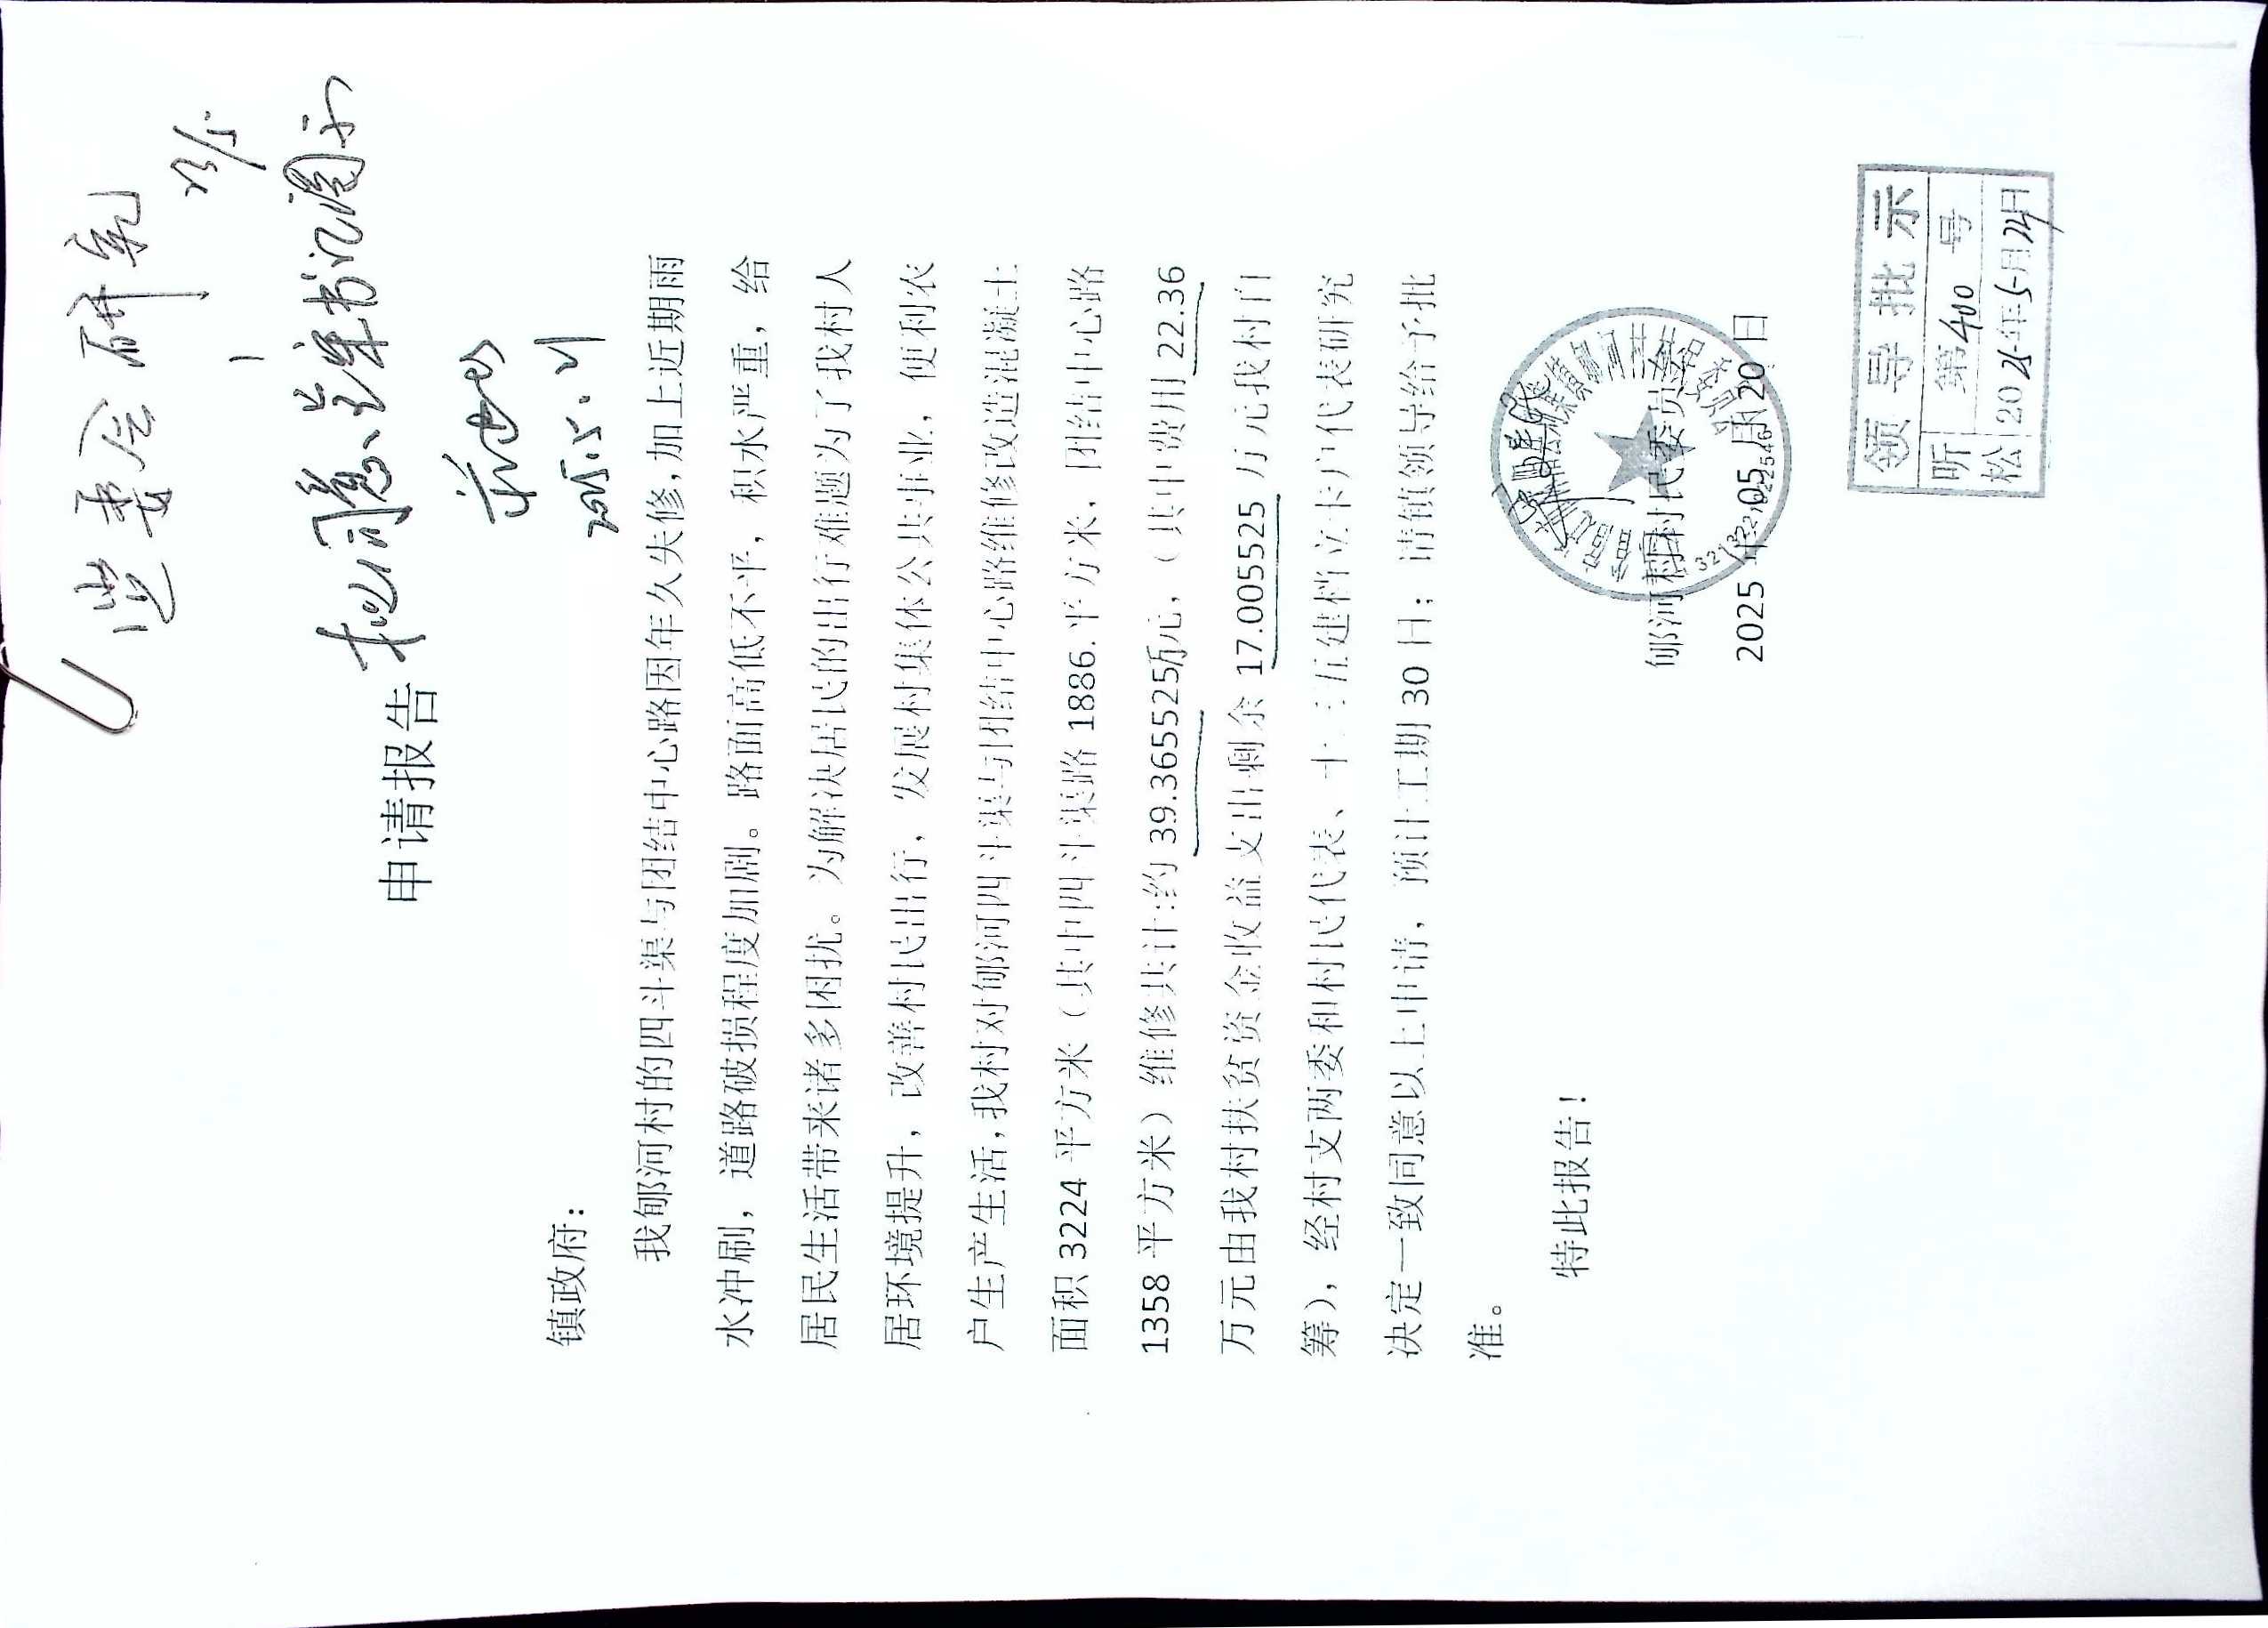 党委会研究
23/5
申请报告
2025.5.21
镇政府：
我郇河村的四斗渠与团结中心路因年久失修,加上近期雨
水冲刷，道路破损程度加剧。路面高低不平，积水严重，给
居民生活带来诸多困扰。为解决居民的出行难题为了我村人
居环境提升，改善村民出行，发展村集体公共事业，便利农
户生产生活,我村对郇河四斗渠与团结中心路维修改造混凝土
面积 3224 平方米（其中四斗渠路 1886.平方米，团结中心路
1358 平方米）维修共计:约 39.365525万元，（其中费用 22.36
万元由我村扶贫资金收益支出剩余 17.005525 万元我村自
筹），经村支两委和村民代表、十三五建档立卡户代表研究
决定一致同意以上申请，预计工期 30 日；请镇领导给予批
准。
特此报告！
郇河村村民委员会
2025 年 05 月 20 日
领导批示
第 400 号
2025年5月24日